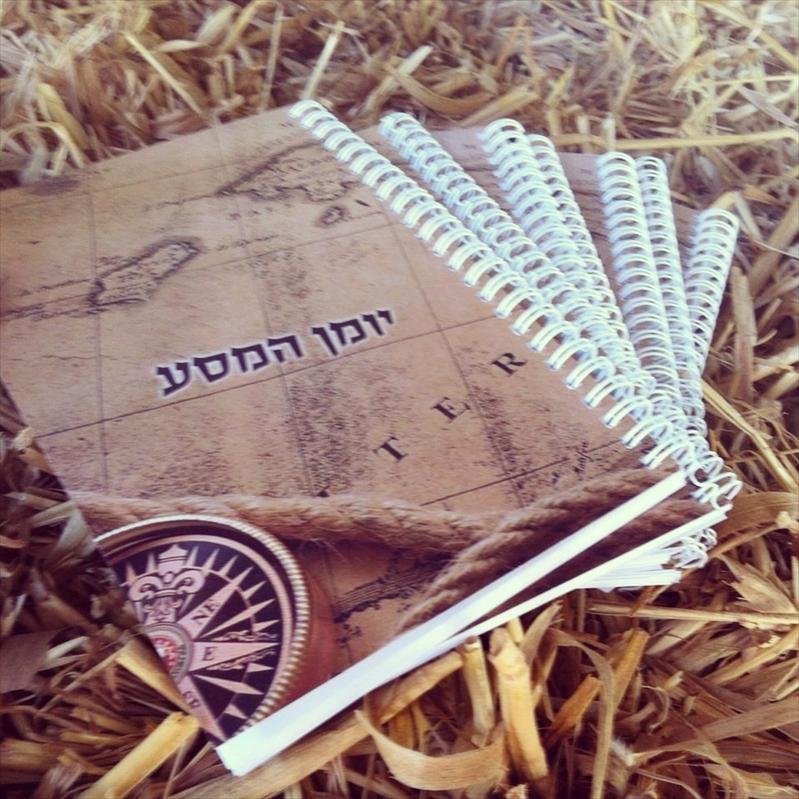 יומן המסע
TER
NE
E
SE